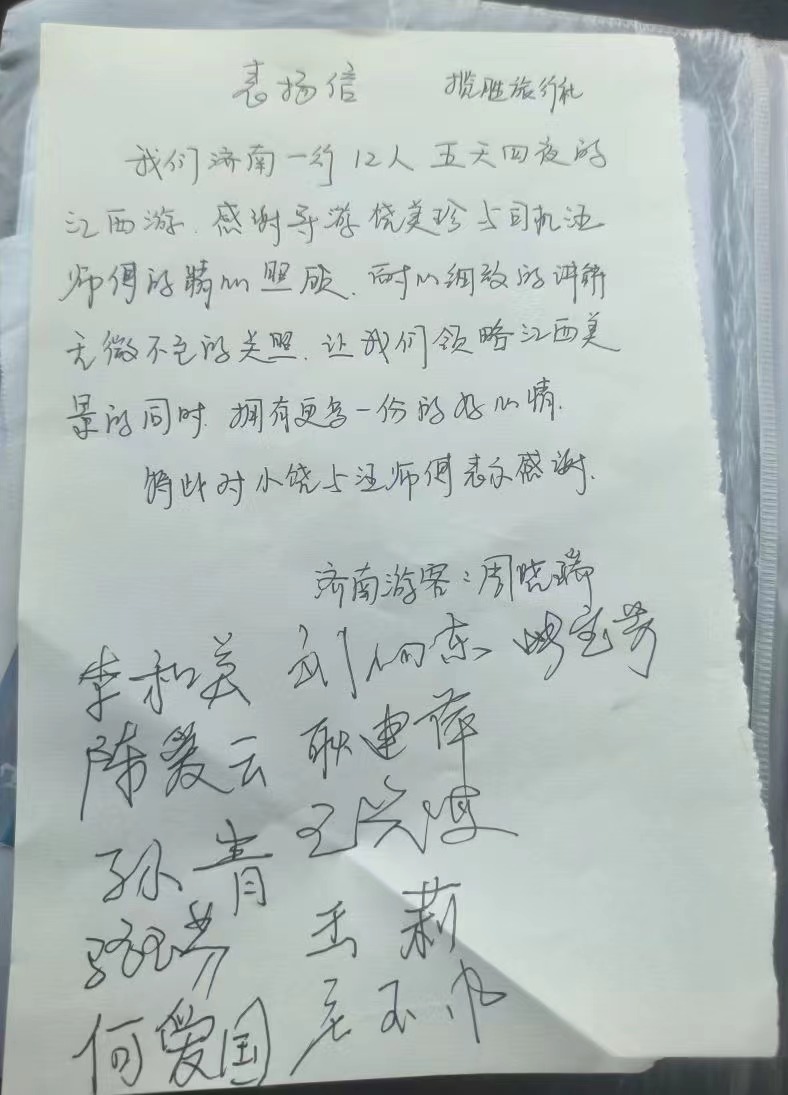 表扬信 揽胜旅行社
我们济南一行12人五天四夜的
江西游.感谢导游饶美珍与司机汪
师傅的精心照顾、耐心细致的讲解
无微不至的关照.让我们领略江西美
景的同时.拥有更多一份的好心情.
特此对小饶与汪师傅表示感谢.
济南游客:周晓瑞
李和英 刘向东
陈爱云 耿建萍
孙青
王莉
何爱国